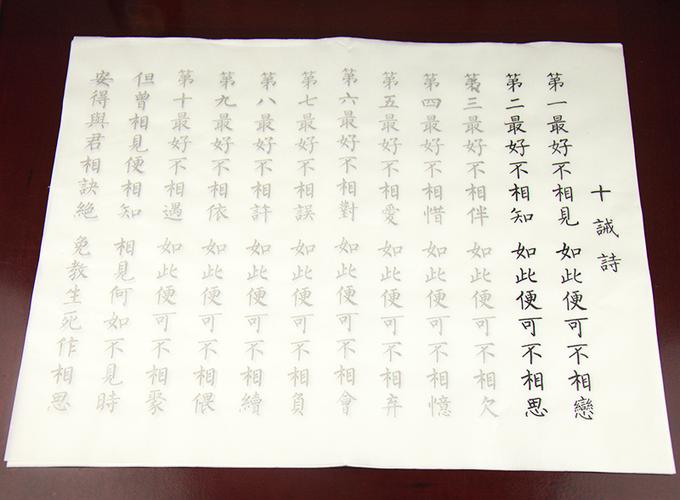 十誡詩
第一最好不相見 如此便可不相戀
第二最好不相知 如此便可不相思
第三最好不相伴 如此便可不相欠
第四最好不相惜 如此便可不相憶
第五最好不相愛 如此便可不相弃
第六最好不相對 如此便可不相會
第七最好不相誤 如此便可不相負
第八最好不相許 如此便可不相續
第九最好不相依 如此便可不相偎
第十最好不相遇 如此便可不相聚
但曾相見便相知 相見何如不見時
安得與君相訣絕 免教生死作相思